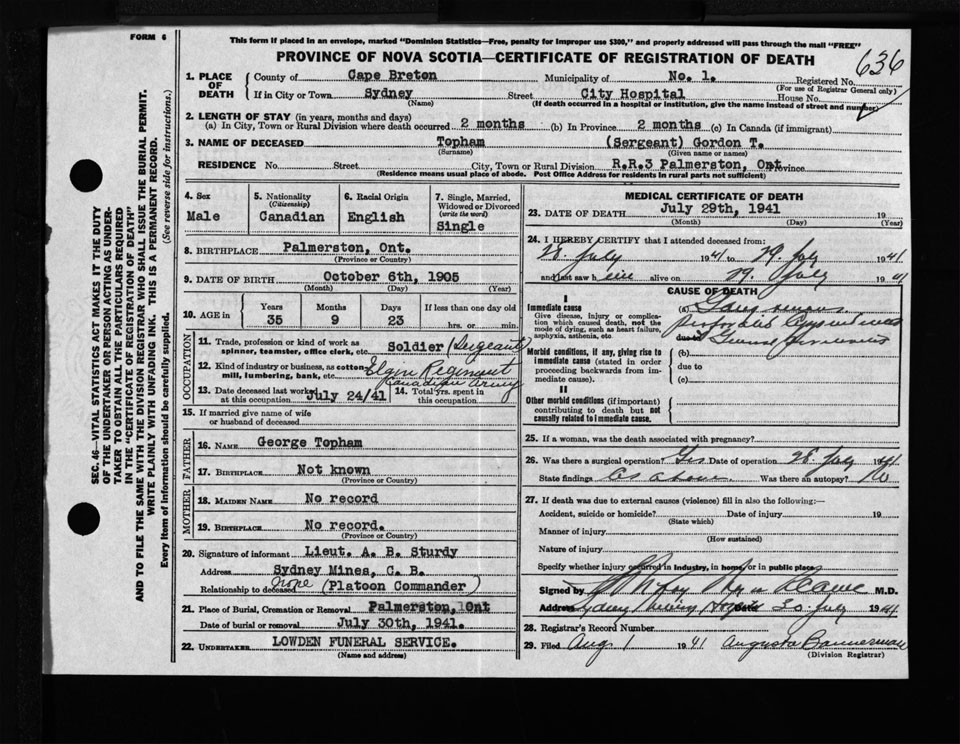 FORM 6
This form if placed in an envelope, marked "Dominion Statistics—Free, penalty for improper use $300," and properly addressed will pass through the mail "FREE"
PROVINCE OF NOVA SCOTIA—CERTIFICATE OF REGISTRATION OF DEATH
636
1. PLACE OF DEATH
County of Cape Breton Municipality of No. 1. Registered No.
(For use of Registrar General only)
If in City or Town Sydney Street City Hospital House No.
(Name) (If death occurred in a hospital or institution, give the name instead of street and number)
2. LENGTH OF STAY (in years, months and days)
(a) In City, Town or Rural Division where death occurred 2 months (b) In Province 2 months (c) In Canada (if immigrant)
3. NAME OF DECEASED Topham (Sergeant) Gordon T.
(Surname) (Given name or names)
RESIDENCE No. Street City, Town or Rural Division R.R.3 Palmerston, Ont Province
(Residence means usual place of abode. Post Office Address for residents in rural parts not sufficient)
4. Sex Male
5. Nationality (Citizenship) Canadian
6. Racial Origin English
7. Single, Married, Widowed or Divorced (write the word) Single
8. BIRTHPLACE Palmerston, Ont.
(Province or Country)
9. DATE OF BIRTH October 6th, 1905
(Month) (Day) (Year)
10. AGE IN Years 35 Months 9 Days 23 If less than one day old hrs. or min.
OCCUPATION
11. Trade, profession or kind of work as spinner, teamster, office clerk, etc. Soldier (Sergeant)
12. Kind of industry or business, as cotton mill, lumbering, bank, etc. Elgin Regiment Canadian Army
13. Date deceased last worked at this occupation July 24/41 14. Total yrs. spent in this occupation
15. If married give name of wife or husband of deceased
FATHER
16. NAME George Topham
17. BIRTHPLACE Not known
(Province or Country)
MOTHER
18. MAIDEN NAME No record
19. BIRTHPLACE No record.
(Province or Country)
20. Signature of informant Lieut. A. B. Sturdy
Address Sydney Mines, C. B.
Relationship to deceased None (Platoon Commander)
21. Place of Burial, Cremation or Removal Palmerston, Ont
Date of burial or removal July 30th, 1941.
22. UNDERTAKER LOWDEN FUNERAL SERVICE.
(Name and address)
MEDICAL CERTIFICATE OF DEATH
23. DATE OF DEATH July 29th, 1941 19
(Month) (Day) (Year)
24. I HEREBY CERTIFY that I attended deceased from:
28. July 1941 to 29. July 1941
and last saw him alive on 29. July 1941
CAUSE OF DEATH
I
Immediate cause (a)
Give disease, injury or complication which caused death, not the mode of dying, such as heart failure, asphyxia, asthenia, etc.
due to
Morbid conditions, if any, giving rise to immediate cause (stated in order proceeding backwards from immediate cause).
(b)
due to
(c)
II
Other morbid conditions (if important) contributing to death but not causally related to immediate cause.
25. If a woman, was the death associated with pregnancy?
26. Was there a surgical operation? Yes Date of operation 28. July 1941
State findings As above Was there an autopsy? No
27. If death was due to external causes (violence) fill in also the following:—
Accident, suicide or homicide? Date of injury 19
(State which)
Manner of injury
(How sustained)
Nature of injury
Specify whether injury occurred in industry, in home, or in public place.
Signed by M.D.
Address Sydney Date 30. July 1941
28. Registrar's Record Number
29. Filed Aug. 1 1941 Augusta Bannerman
(Division Registrar)
SEC. 46—VITAL STATISTICS ACT MAKES IT THE DUTY
OF THE UNDERTAKER OR PERSON ACTING AS UNDER-
TAKER TO OBTAIN ALL THE PARTICULARS REQUIRED
IN THE "CERTIFICATE OF REGISTRATION OF DEATH"
AND TO FILE THE SAME WITH THE DIVISION REGISTRAR WHO SHALL ISSUE THE BURIAL PERMIT.
WRITE PLAINLY WITH UNFADING INK. THIS IS A PERMANENT RECORD.
Every item of information should be carefully supplied. (See reverse side for instructions.)